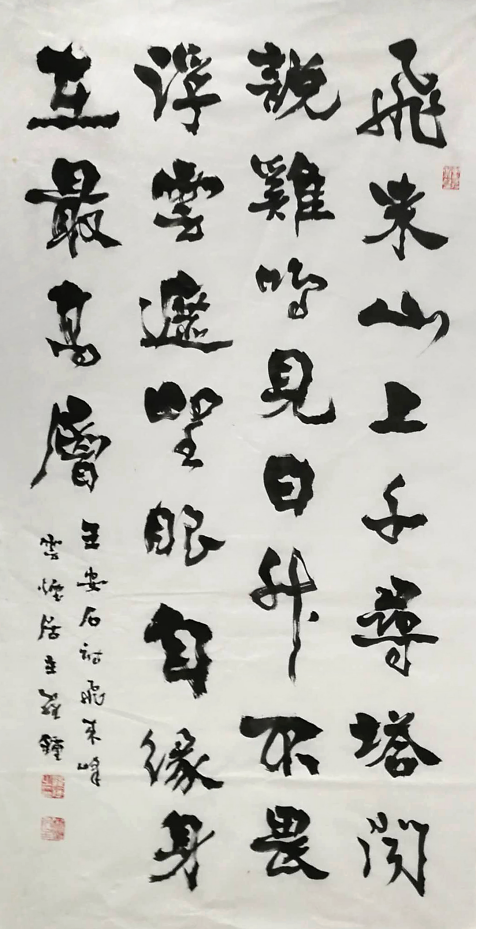 飛來山上千尋塔聞
說雞鳴見日升不畏
浮雲遮望眼自緣身
在最高層
王安石詩飛來峰
雲煙居主 鍾